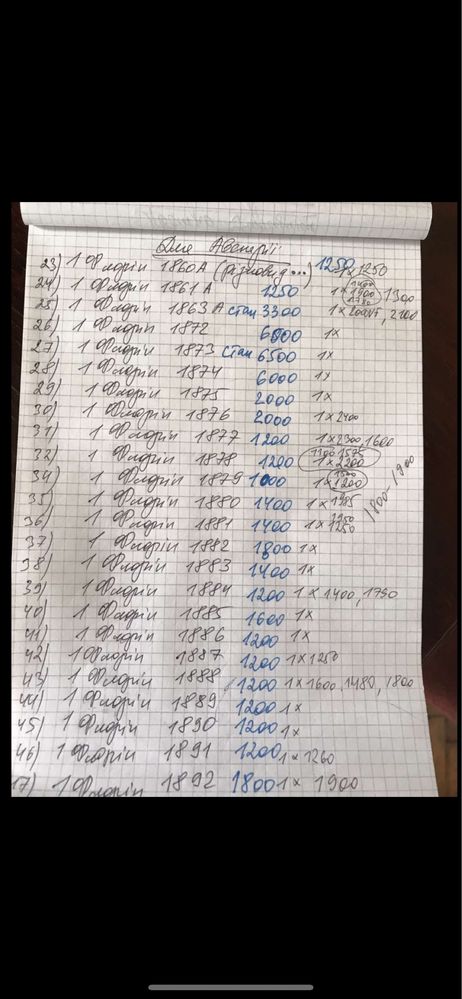 Для Австрії:
23) 1 Флорін 1860 А (різновид...) 1250 1x1250
24) 1 Флорін 1861 А 1250 1x 1300
25) 1 Флорін 1863 А стан 3300 1x 2100
26) 1 Флорін 1872 6800 1x
27) 1 Флорін 1873 стан 6500 1x
28) 1 Флорін 1874 6000 1x
29) 1 Флорін 1875 2000 1x
30) 1 Флорін 1876 2000 1x 2400
31) 1 Флорін 1877 1200 1x2300, 1600
32) 1 Флорін 1878 1200 1x2200 1575
34) 1 Флорін 1879 1000 1x1200 1800 1900
35) 1 Флорін 1880 1400 1x
36) 1 Флорін 1881 1400 1x 1250
37) 1 Флорін 1882 1800 1x
38) 1 Флорін 1883 1400 1x
39) 1 Флорін 1884 1200 1x 1400, 1750
40) 1 Флорін 1885 1600 1x
41) 1 Флорін 1886 1200 1x
42) 1 Флорін 1887 1200 1x1250
43) 1 Флорін 1888 1200 1x1600, 1480, 1800
44) 1 Флорін 1889 1200 1x
45) 1 Флорін 1890 1200 1x
46) 1 Флорін 1891 1200 1x1260
47) 1 Флорін 1892 1800 1x 1900